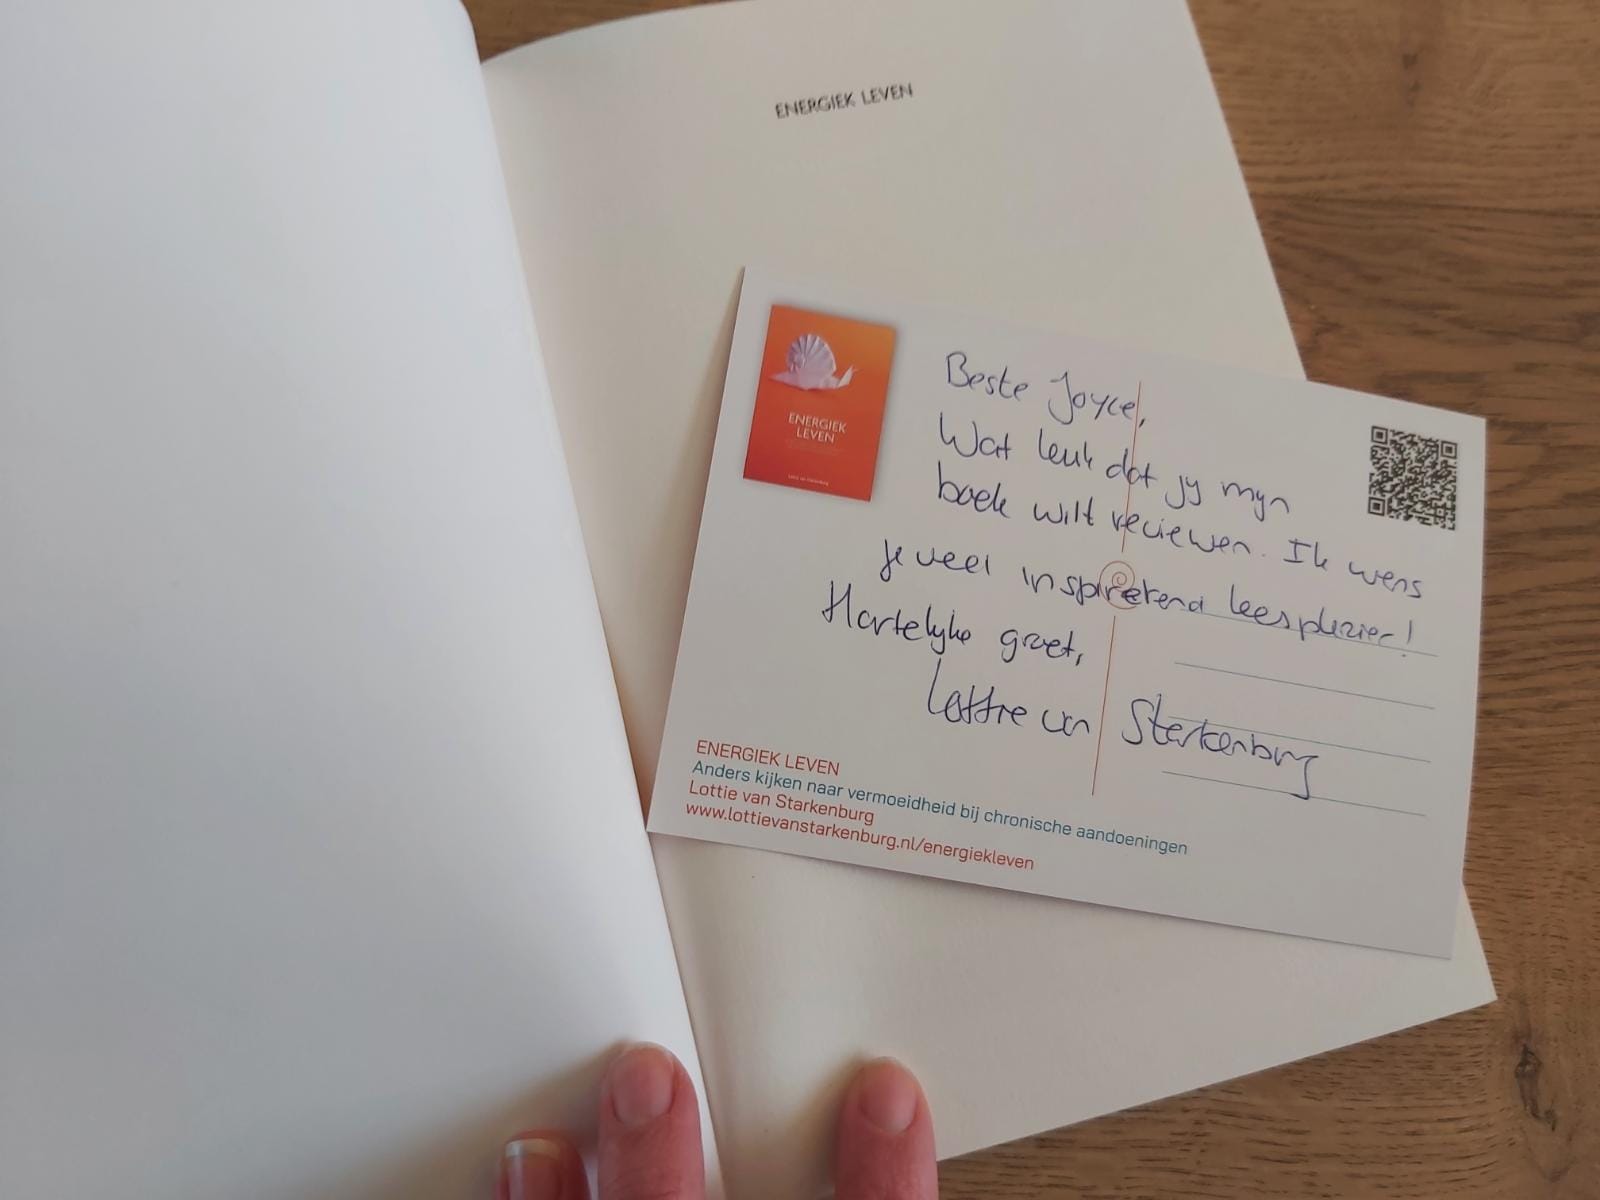 ENERGIEK LEVEN
ENERGIEK
LEVEN
Lottie van Starkenburg
Beste Joyce,
Wat leuk dat jij mijn
boek wilt reviewen. Ik wens
je veel inspirerend leesplezier!
Hartelijke groet,
Lottie van Starkenburg
ENERGIEK LEVEN
Anders kijken naar vermoeidheid bij chronische aandoeningen
Lottie van Starkenburg
www.lottievanstarkenburg.nl/energiekleven